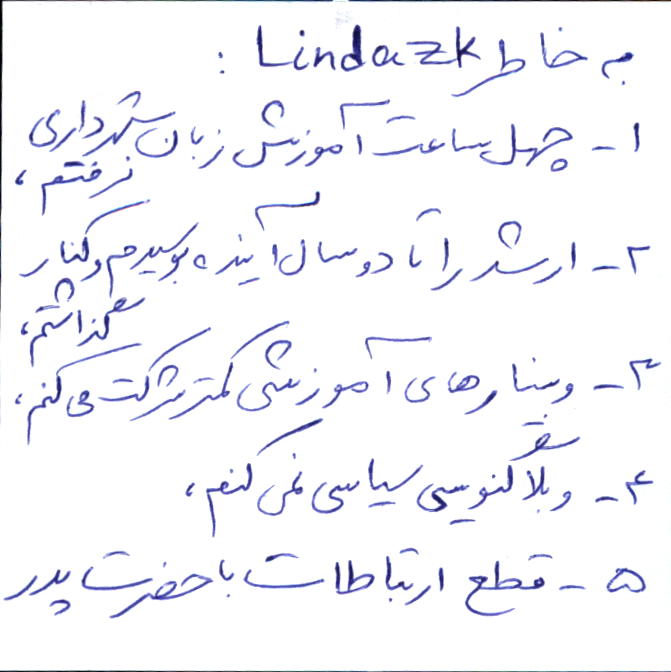 به خاطر Lindazk :
۱- چهل ساعت آموزش زبان شهرداری
نرفتم،
۲- ارشد را تا دو سال آینده بوسیدم و کنار
گذاشتم،
۳- وبینارهای آموزشی کمتر شرکت می کنم،
۴- وبلاگنویسی سیاسی نمی کنم،
۵- قطع ارتباطات با حضرت پدر